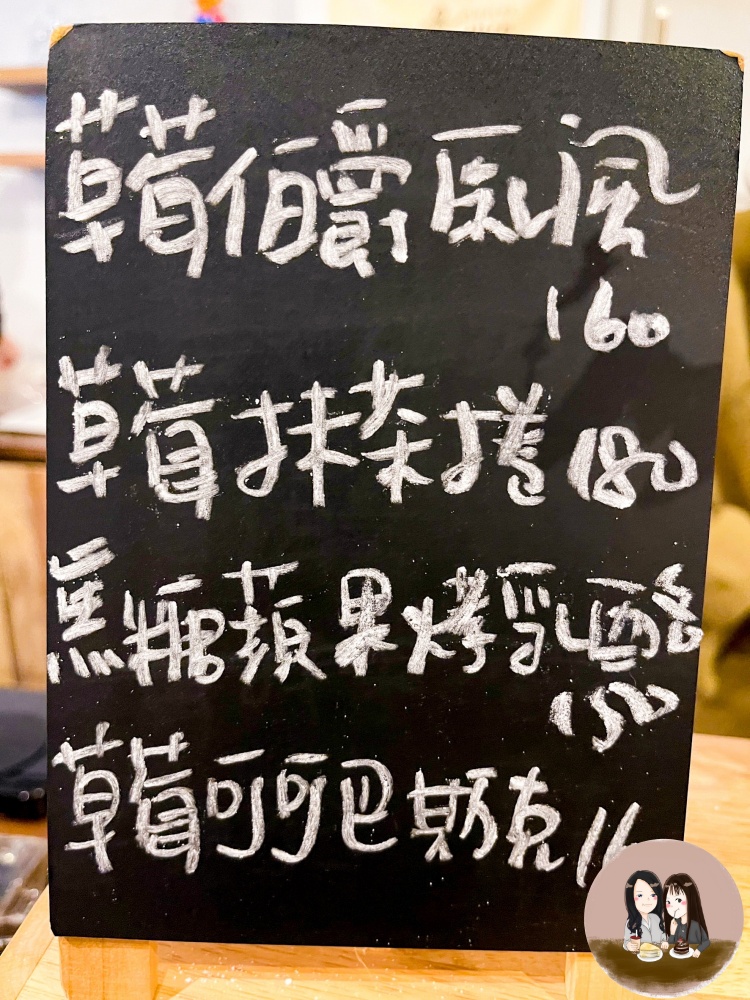 草莓伯爵戚風
160
草莓抹茶捲 180
焦糖蘋果烤乳酪
150
草莓可可巴斯克